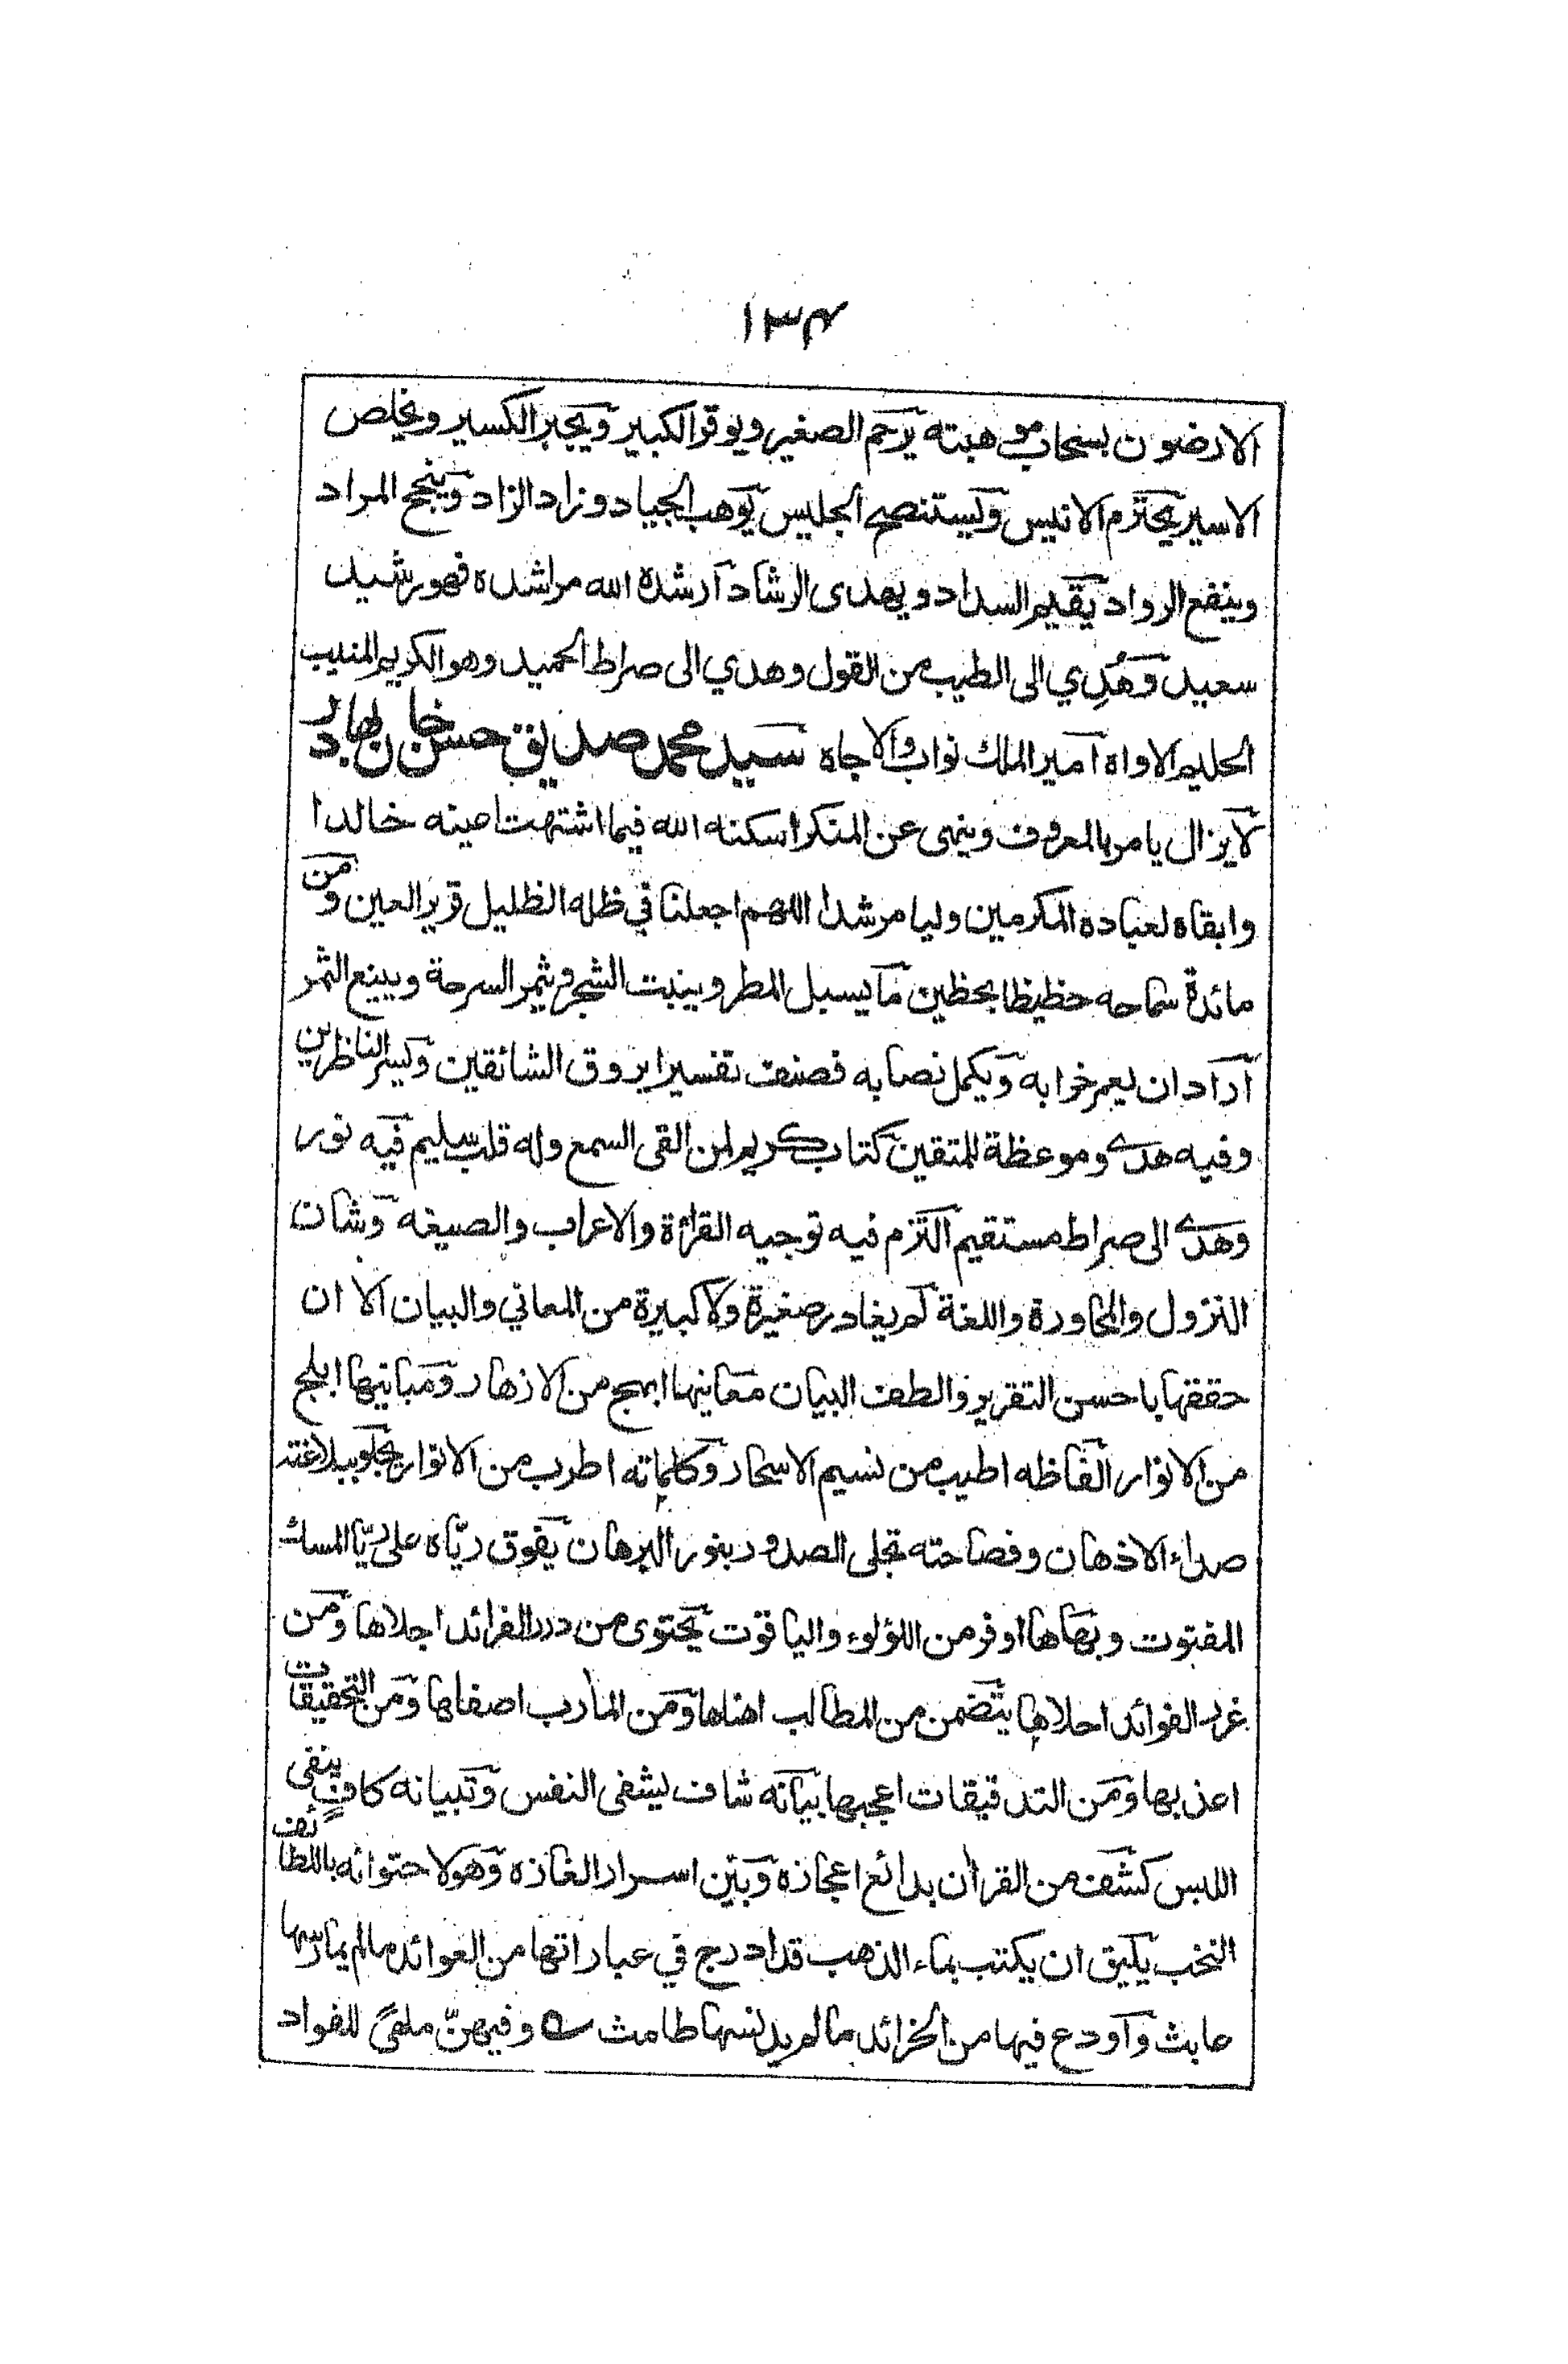 ١٣٤
الارضون بسحاب موهبته يرحم الصغير ويوقر الكبير ويجبر الكسير ويخلص
الاسير يحترم الانيس ويستنصح الجليس يوهب الجياد وزاد الزاد وينجح المراد
وينفع الرواد يقيم السداد ويهدى الرشاد ارشده الله مراشده فهو رشيد
سعيد وهُدِي الى الطيب من القول وهدي الى صراط الحميد وهو الكريم المنيب
الحليم الاواه امير الملك نواب والا جاه سيد محمد صديق حسن خان بهادر
لا يزال يامر بالمعروف وينهى عن المنكر اسكنه الله فيما اشتهت عينه خالدا
وابقاه لعباده المكرمين وليا مرشدا اللهم اجعلنا في ظله الظليل قرير العين ومن
مائدة سماحه حظيظا بحظين ما يسبل المطر وينبت الشجر ويثمر السرحة ويينع الثمر
اراد ان يعمر خرابه ويكمل نصابه فصنف تفسيرا يروق الشائقين ويسر الناظرين
وفيه هدى وموعظة للمتقين كتاب كريم لمن القى السمع وله قلب سليم فيه نور
وهدى الى صراط مستقيم التزم فيه توجيه القراءة والاعراب والصيغه وشان
النزول والمحاورة واللغة لم يغادر صغيرة ولا كبيرة من المعاني والبيان الا ان
حققها باحسن التقرير والطف البيان معانيها ابهج من الازهار ومبانيها ابلج
من الانوار الفاظه اطيب من نسيم الاسحار وكلماته اطرب من الانوار يجلو ببلاغته
صداء الاذهان وفصاحته تجلى الصدور بنور البرهان يفوق ريّاه على ريّا المسك
المفتوت وبهاها اوفر من اللؤلوء والياقوت يحتوى من درر الفرائد اجلاها ومن
غرر الفوائد احلاها يتضمن من المطالب اهناها ومن المأرب اصفاها ومن التحقيقات
اعذبها ومن التدقيقات اعجبها بيانه شاف يشفى النفس وتبيانه كافٍ ينفى
اللبس كشف من القران بدائع اعجازه وبيّن اسرار الغازه وهو لاحتوائه باللطائف
النخب يليق ان يكتب بماء الذهب قد ادرج في عباراتها من العوائد ما لم يمارسها
عابث واودع فيها من الخرائد ما لم يدنسها طامث وفيهنّ ملهىً للفواد